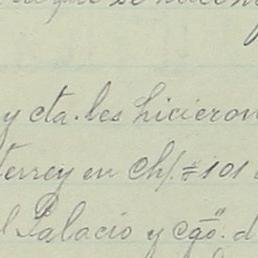 y cta. les hicieron
terrey en Ch/. # 101
l Palacio y cgo. d